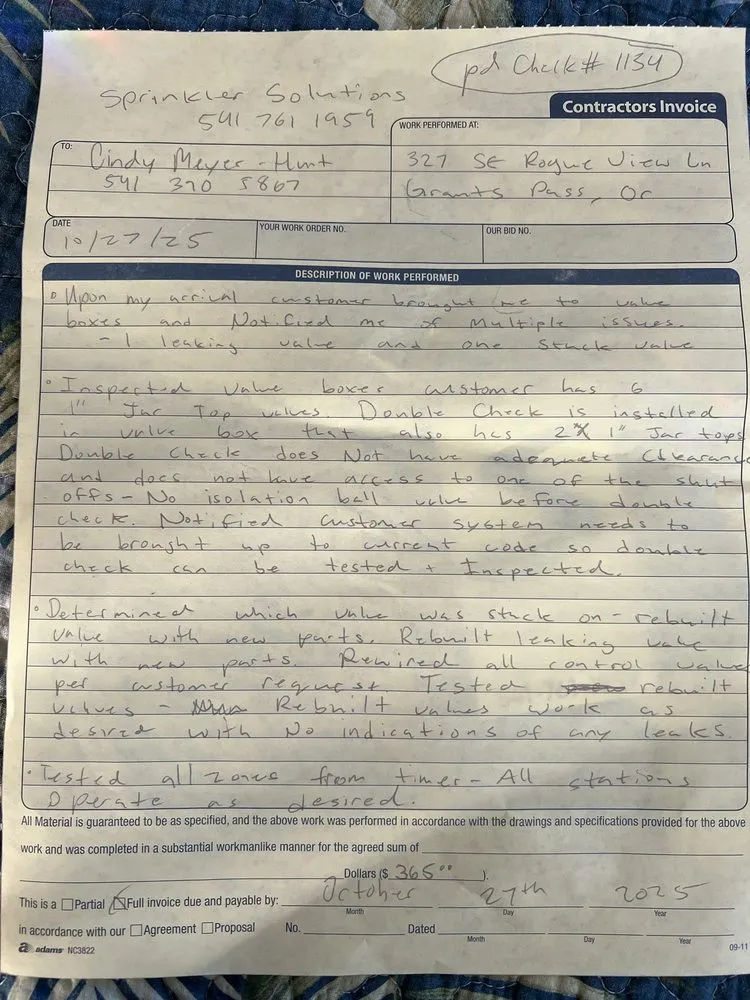 pd Check# 1134
Sprinkler Solutions
541 761 1959
Contractors Invoice
TO:
Cindy Meyer-Hunt
541 370 5867
WORK PERFORMED AT:
327 SE Rogue View Ln
Grants Pass, Or
DATE
10/27/25
YOUR WORK ORDER NO.
OUR BID NO.
DESCRIPTION OF WORK PERFORMED
• Upon my arrival customer brought me to valve
boxes and Notified me of Multiple issues.
- 1 leaking valve and one stuck valve
• Inspected valve boxes customer has 6
1" Jar Top valves. Double Check is installed
in valve box that also has 2 1" Jar tops
Double Check does Not have adequate Clearance
and does not have access to one of the shut
offs - No isolation ball valve before double
check. Notified customer system needs to
be brought up to current code so double
check can be tested + Inspected.
• Determined which valve was stuck on - rebuilt
valve with new parts. Rebuilt leaking valve
with new parts. Rewired all control valves
per customer request. Tested rebuilt
valves - Rebuilt valves work as
desired with No indications of any leaks.
• Tested all zones from timer - All stations
Operate as desired.
All Material is guaranteed to be as specified, and the above work was performed in accordance with the drawings and specifications provided for the above
work and was completed in a substantial workmanlike manner for the agreed sum of
Dollars ($ 365⁰⁰ ).
This is a Partial Full invoice due and payable by: October 27th 2025
Month Day Year
in accordance with our Agreement Proposal No. Dated
Month Day Year
a adams NC3822
09-11